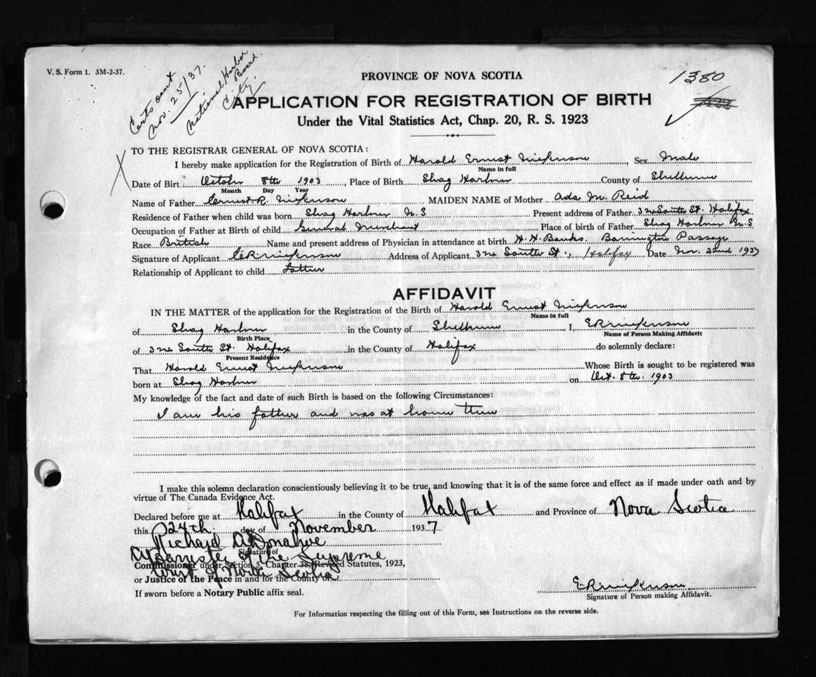 V. S. Form 1. 3M-2-37.
Nov. 25/37.
National Harbor
Board.
City.
1380
PROVINCE OF NOVA SCOTIA
APPLICATION FOR REGISTRATION OF BIRTH
Under the Vital Statistics Act, Chap. 20, R. S. 1923
TO THE REGISTRAR GENERAL OF NOVA SCOTIA:
I hereby make application for the Registration of Birth of Harold Ernest Nickerson, Sex Male
Name in full
Date of Birth October 8th 1903, Place of Birth Shag Harbor County of Shelburne
Month Day Year
Name of Father Ernest R. Nickerson MAIDEN NAME of Mother Ada M. Reid
Residence of Father when child was born Shag Harbor N.S Present address of Father South St. Halifax
Occupation of Father at Birth of child General Merchant Place of birth of Father Shag Harbor N.S
Race British Name and present address of Physician in attendance at birth H. H. Banks. Barrington Passage
Signature of Applicant E R Nickerson Address of Applicant South St., Halifax Date Nov. 22nd 1937
Relationship of Applicant to child Father
AFFIDAVIT
IN THE MATTER of the application for the Registration of the Birth of Harold Ernest Nickerson
Name in full
of Shag Harbor in the County of Shelburne I, E R Nickerson
Birth Place Name of Person Making Affidavit
of South St. Halifax in the County of Halifax do solemnly declare:
Present Residence
That Harold Ernest Nickerson Whose Birth is sought to be registered was
born at Shag Harbor on Oct. 8th 1903
My knowledge of the fact and date of such Birth is based on the following Circumstances:
I am his father and was at home then
I make this solemn declaration conscientiously believing it to be true, and knowing that it is of the same force and effect as if made under oath and by
virtue of The Canada Evidence Act.
Declared before me at Halifax in the County of Halifax and Province of Nova Scotia
this 24th day of November 1937
Richard A. Donahoe
Signature of
A Barrister of the Supreme
Commissioner under Section 3, Chapter 38, Revised Statutes, 1923,
Court of Nova Scotia
or Justice of the Peace in and for the County of
If sworn before a Notary Public affix seal.
E R Nickerson
Signature of Person making Affidavit.
For Information respecting the filling out of this Form, see Instructions on the reverse side.